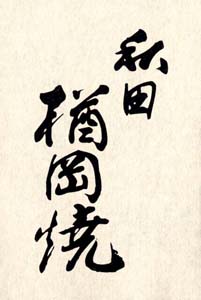 秋田
楢岡焼